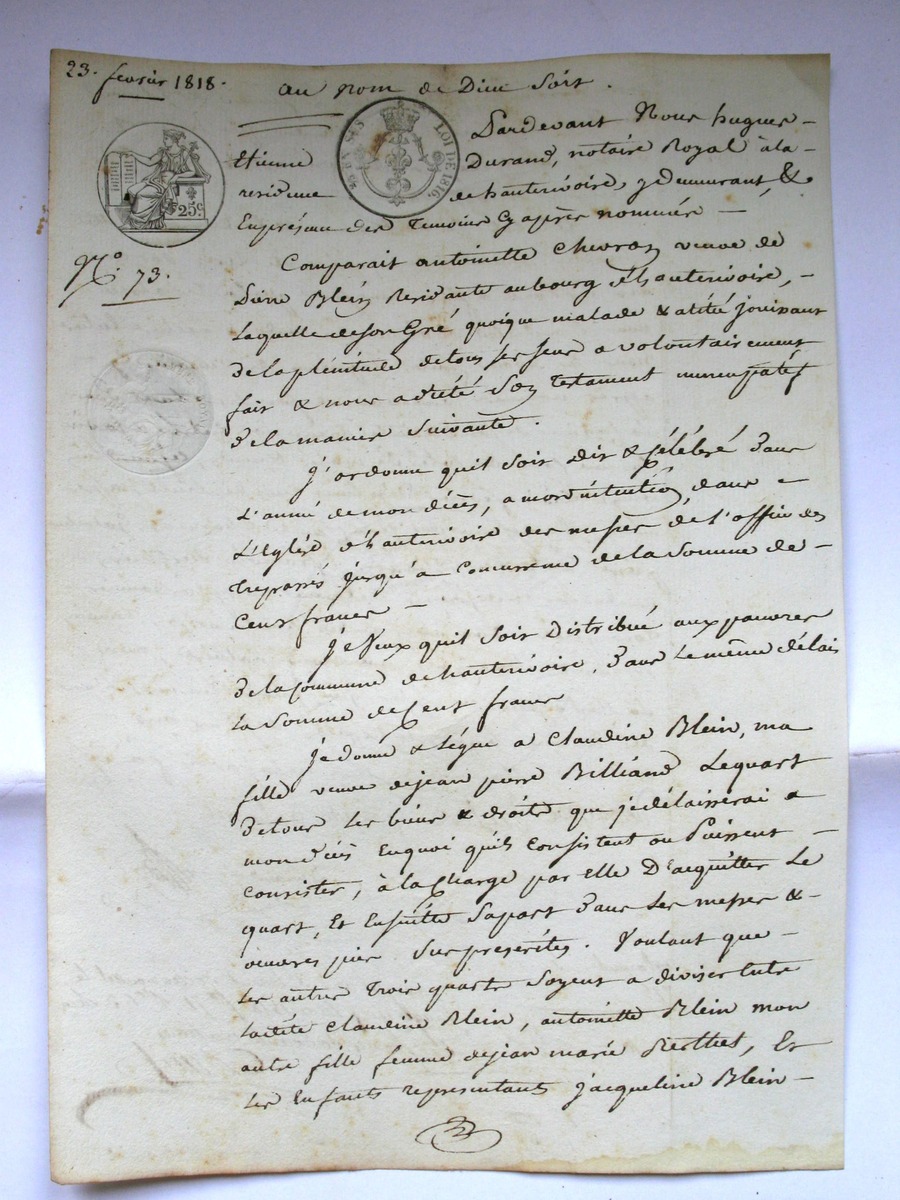 23. fevrier 1818.
au nom de Dieu soit.
25 EN SUS LOI DE 1816
25c.
N.o 73.
Pardevant Nous hugues -
Etienne Durand, notaire Royal à la -
residence de hauterivoire y demeurant, &
En présence des Temoins Cy après nommés -
Comparait antoinette Chevron veuve de
Blein Residante au bourg d'hauterivoire, -
Laquelle de son Gré quoique malade & alitée jouissant
de la plénitude de tous ses sens a volontairement
fait & nous a dicté Son Testament nuncupatif
de la maniere Suivante.
J'ordonne quil soit dit & Célébré dans
L'année de mon décès, a mon intention, dans -
L'Eglise d'hauterivoire des messes de l'office des
Trepassés jusqu'a Concurrence de la somme de -
Cent francs -
Je Veux quil soit distribué aux pauvres
de la Commune de hauterivoire, dans le même délais
La somme de Cent francs
Je donne & Légue a Claudine Blein, ma
fille veuve de jean pierre Billiand Le quart
de tous les biens & droits que je délaisserai a
mon décès En quoi qu'ils Consistent ou Puissent -
Consister, à la Charge par elle D'acquitter Le
quart, Et Ensuitte Sa part dans Les messes & -
oeuvres pies sus prescrites. Voulant que -
Les autres Trois quarts Soyent a diviser Entre
La dité Claudine Blein, antoinette Blein mon
autre fille femme de jean marie Berthet, Et
Les Enfants representants jacqueline Blein -